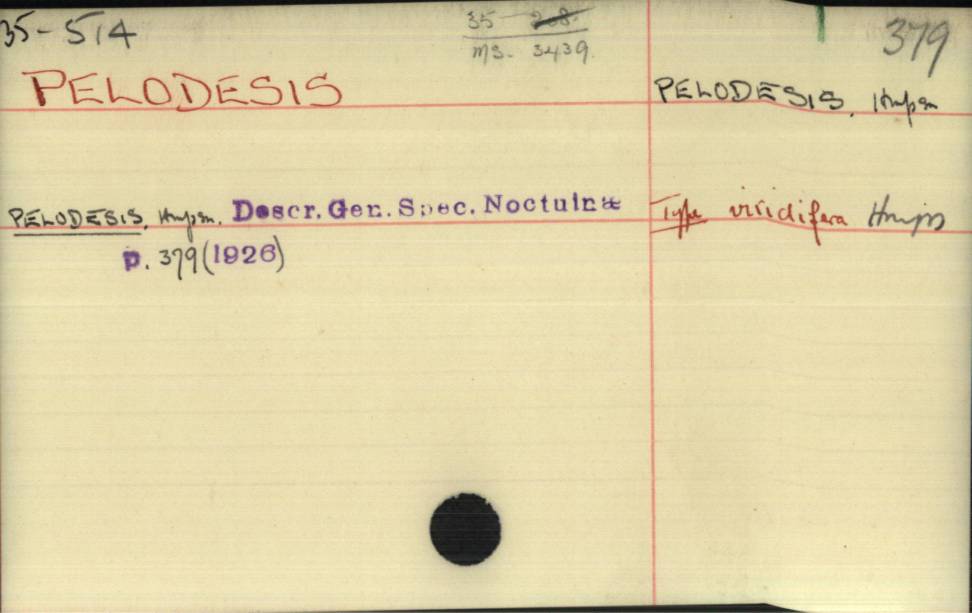 35-514
35 268.
MS. 3439.
379
PELODESIS
PELODESIS, Hmpsn
PELODESIS, Hmpsn. Descr. Gen. Spec. Noctuinæ
Type viridifera Hmps
p. 379 (1926)